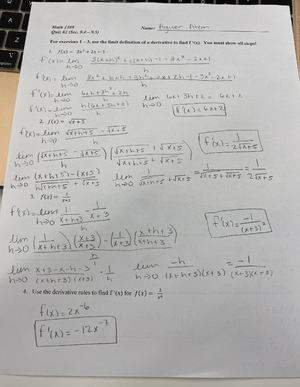 Math 1309 Name:
Quiz #2 (Sec. 9.4 – 9.5)
For exercises 1 – 3, use the limit definition of a derivative to find f'(x). You must show all steps!
1. f(x) = 3x² + 2x − 1
f'(x) = lim h→0 3(x+h)² + 2(x+h) − 1 − 3x² − 2x + 1 / h
f'(x) = lim h→0
f'(x) = lim h→0 6xh + 3h² + 2h / h lim h→0 6x + 3h + 2 = 6x + 2
f'(x) = lim h→0 h(6x + 3h + 2) / h f'(x) = 6x + 2
2. f(x) = √x+5
f'(x) = lim h→0 √x+h+5 − √x+5 / h
lim h→0 (√x+h+5 − √x+5 / h) (√x+h+5 + √x+5 / √x+h+5 + √x+5) f'(x) = 1 / 2√x+5
lim h→0 (x+h+5) − (x+5) / h√x+h+5 + √x+5 lim h→0 1 / √x+h+5 + √x+5 = 1 / √x+5 + √x+5 = 1 / 2√x+5
3. f(x) = 1 / x+3
f'(x) = lim h→0 1 / x+h+3 − 1 / x+3 / h f'(x) = −1 / (x+3)²
lim h→0 (1 / x+h+3) (x+3 / x+3) − (1 / x+3) (x+h+3 / x+h+3) / h
lim h→0 x+3−x−h−3 / (x+h+3)(x+3) · 1 / h lim h→0 −h / (x+h+3)(x+3) = −1 / (x+3)(x+3)
4. Use the derivative rules to find f'(x) for f(x) = 2 / x⁶
f(x) = 2x⁻⁶
f'(x) = −12x⁻⁷